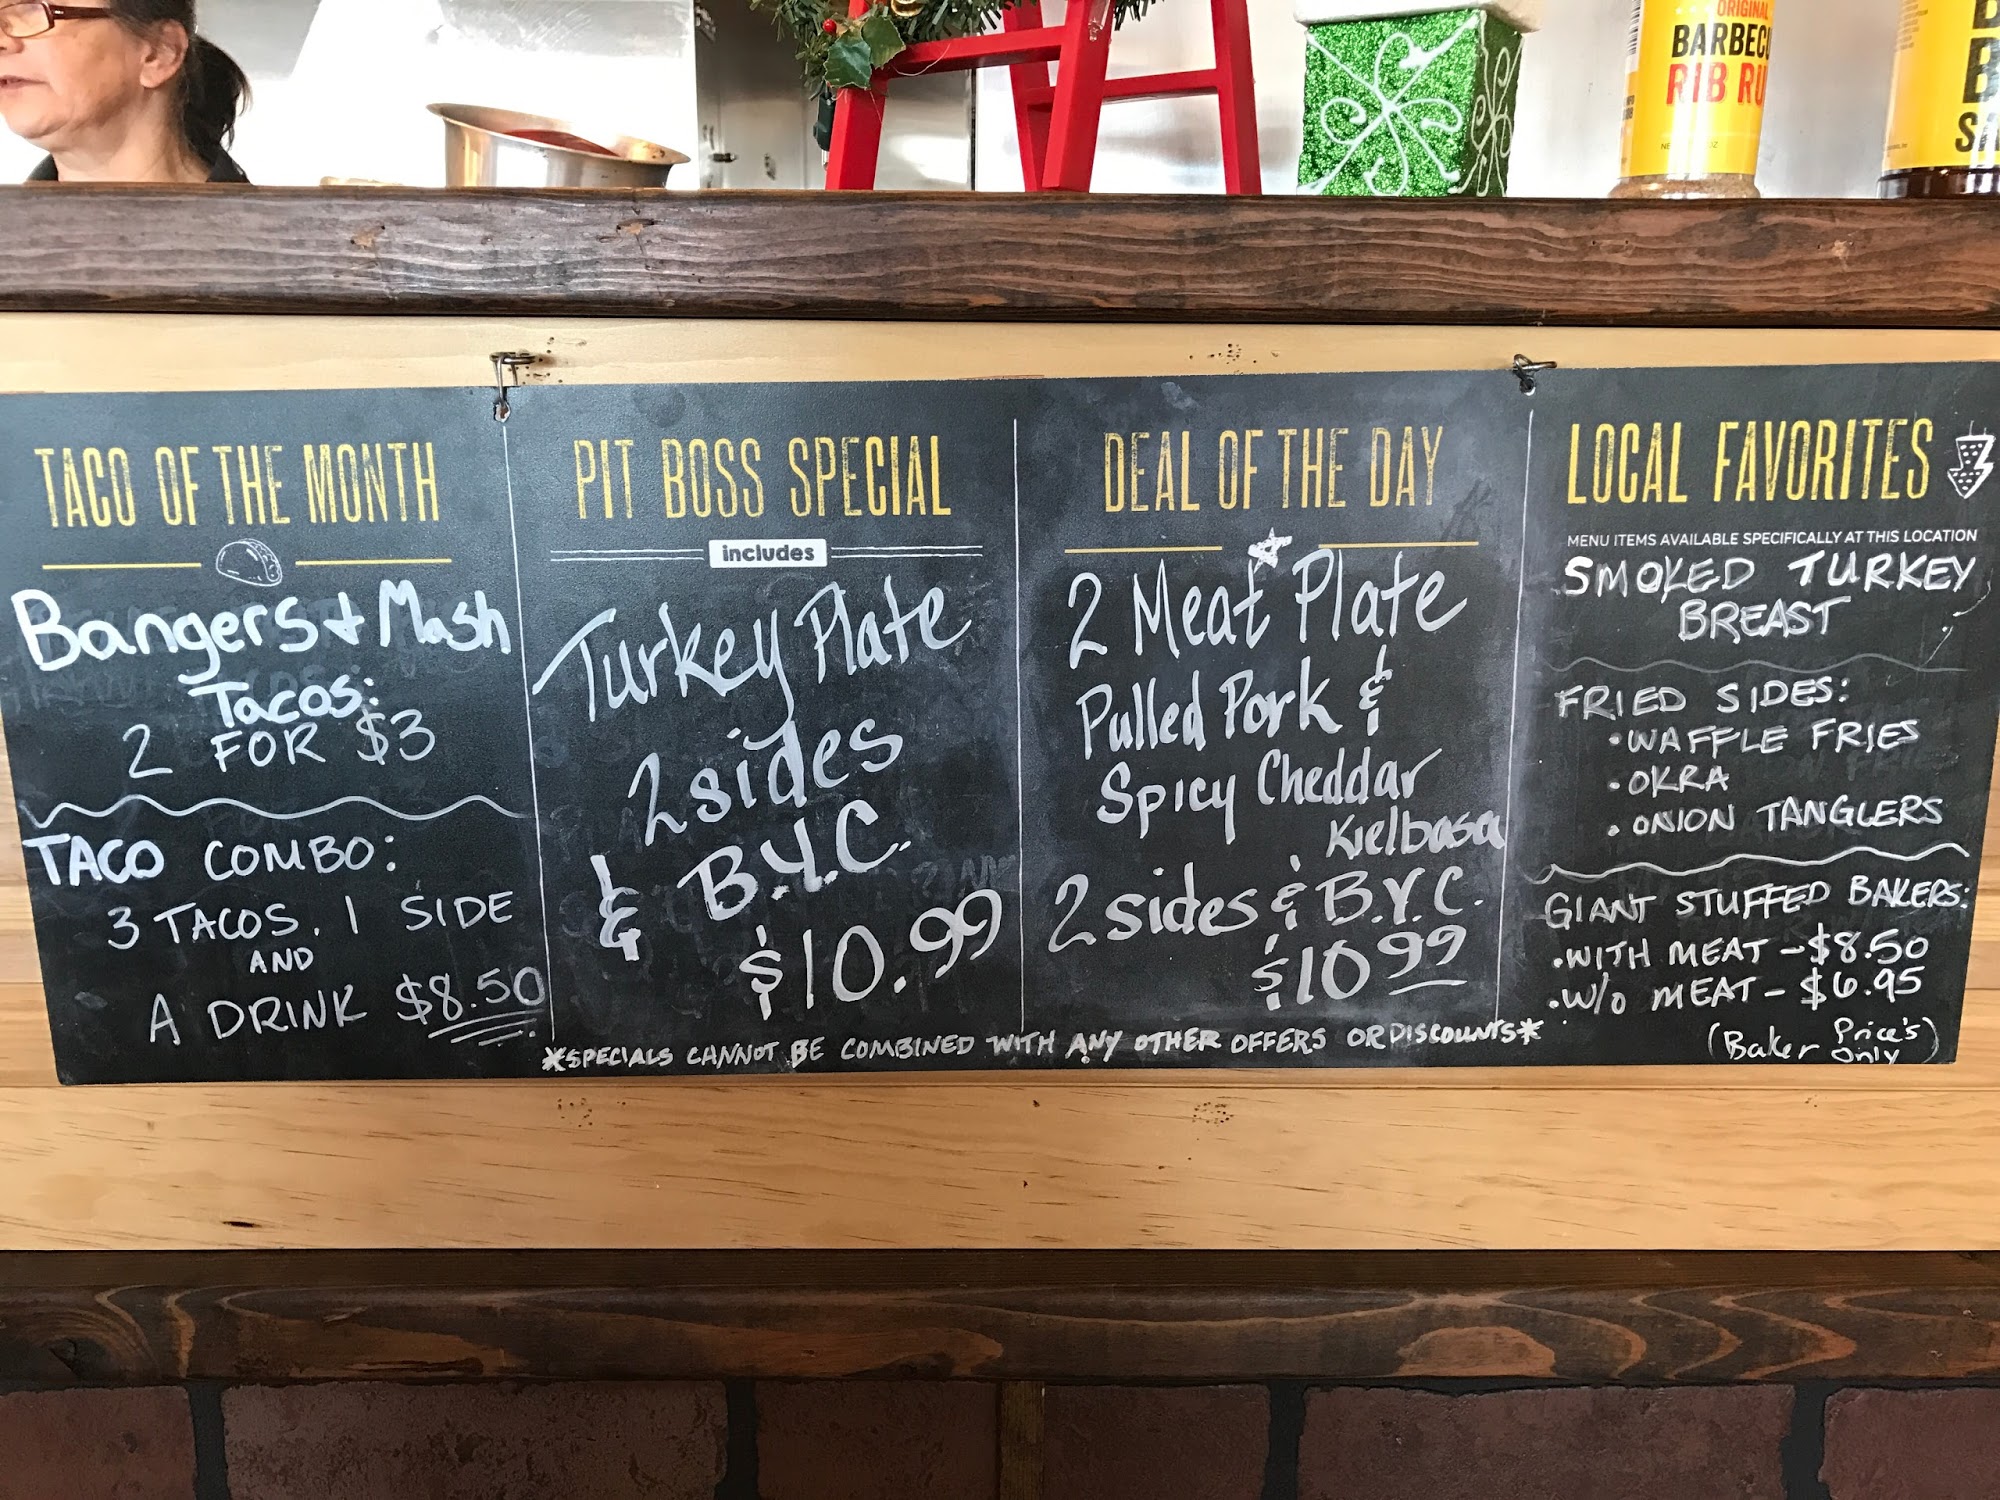 ORIGINAL
BARBECU
RIB RU
TACO OF THE MONTH
Bangers & Mash
Tacos:
2 FOR $3
TACO COMBO:
3 TACOS, 1 SIDE
AND
A DRINK $8.50
PIT BOSS SPECIAL
includes
Turkey Plate
2 sides
& B.Y.C.
$10.99
DEAL OF THE DAY
2 Meat Plate
Pulled Pork &
Spicy Cheddar
Kielbasa
2 sides & B.Y.C.
$10.99
*SPECIALS CANNOT BE COMBINED WITH ANY OTHER OFFERS OR DISCOUNTS*
LOCAL FAVORITES
MENU ITEMS AVAILABLE SPECIFICALLY AT THIS LOCATION
SMOKED TURKEY
BREAST
FRIED SIDES:
• WAFFLE FRIES
• OKRA
• ONION TANGLERS
GIANT STUFFED BAKERS:
• WITH MEAT - $8.50
• W/O MEAT - $6.95
(Baker Price's
Only)